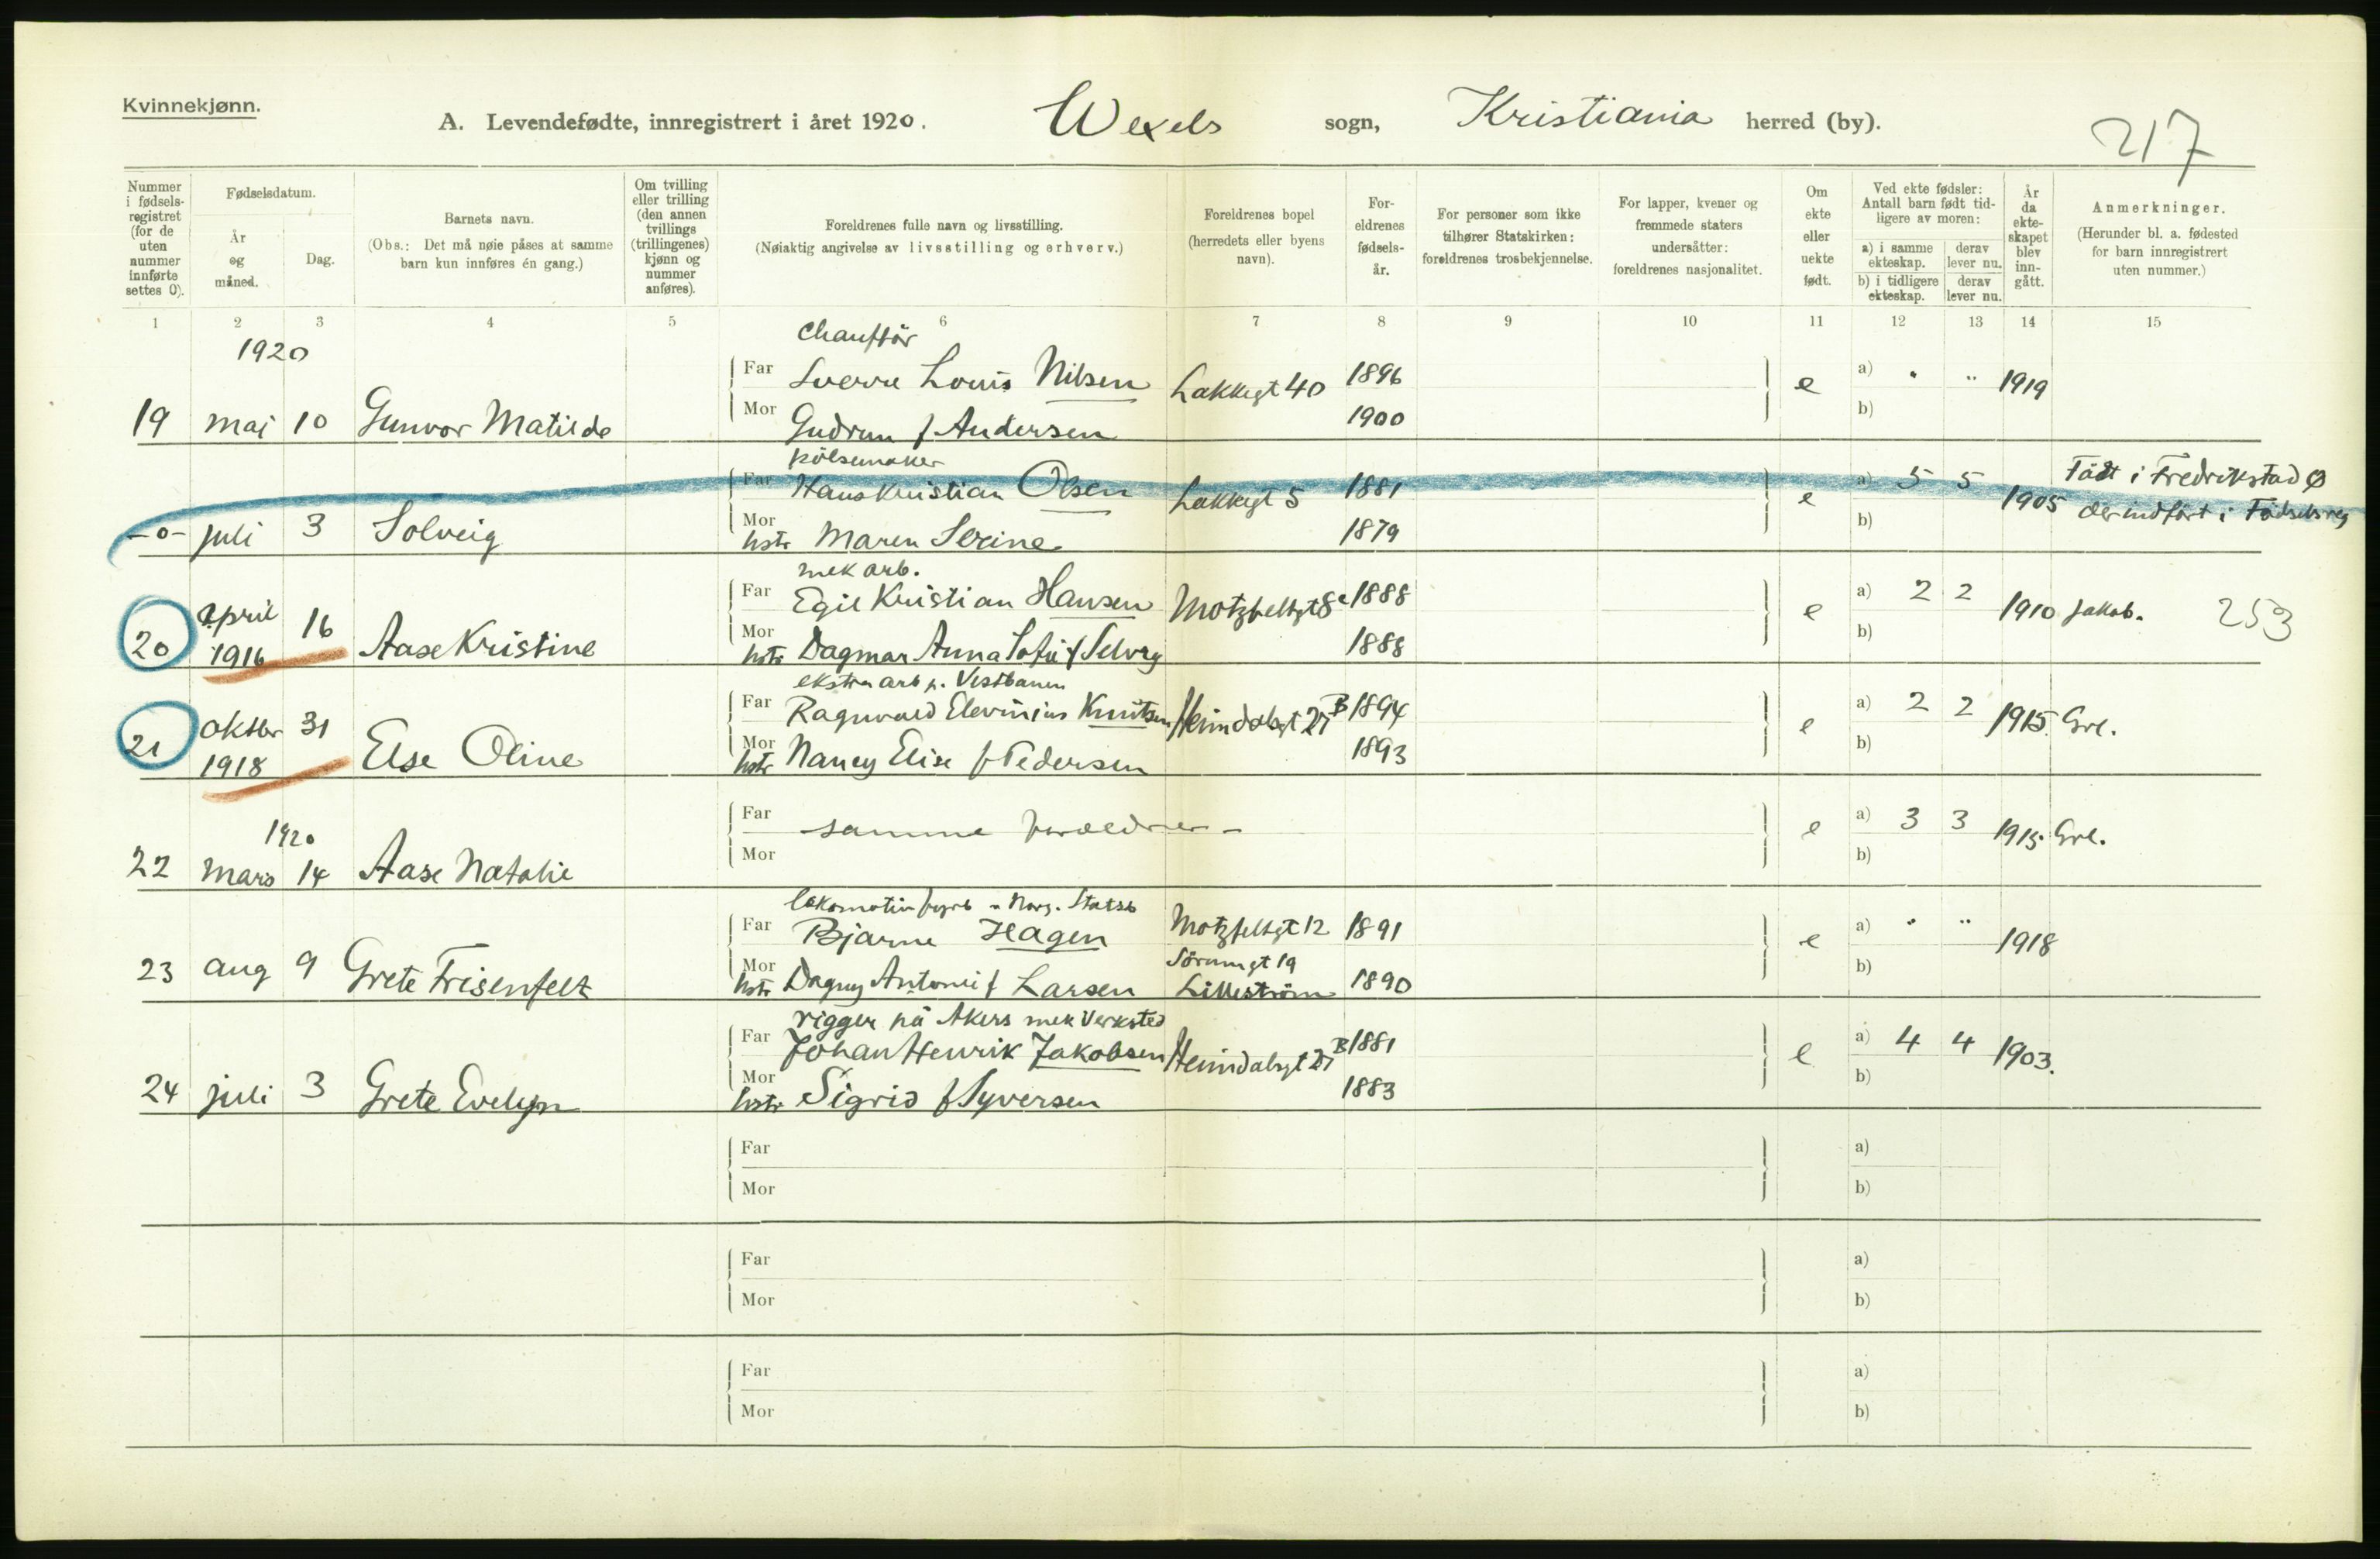 Kvinnekjønn.
A. Levendefødte, innregistrert i året 1920. Wexels sogn, Kristiania herred (by).
217
Nummer i fødsels-registret (for de uten nummer innførte settes 0).
Fødselsdatum.
År og måned.
Dag.
Barnets navn.
(Obs.: Det må nøie påses at samme barn kun innføres én gang.)
Om tvilling eller trilling (den annen tvillings (trillingenes) kjønn og nummer anføres).
Foreldrenes fulle navn og livsstilling.
(Nøiaktig angivelse av livsstilling og erhverv.)
Foreldrenes bopel (herredets eller byens navn).
For-eldrenes fødsels-år.
For personer som ikke tilhører Statskirken: foreldrenes trosbekjennelse.
For lapper, kvener og fremmede staters undersåtter: foreldrenes nasjonalitet.
Om ekte eller uekte født.
Ved ekte fødsler: Antall barn født tid-ligere av moren:
a) i samme ekteskap.
derav lever nu.
b) i tidligere ekteskap.
derav lever nu.
År da ekte-skapet blev inn-gått.
Anmerkninger.
(Herunder bl. a. fødested for barn innregistrert uten nummer.)
1 2 3 4 5 6 7 8 9 10 11 12 13 14 15
1920
Chauffør
Far Sverre Louis Nilsen Lakkegt 40 1896 e a) " " 1919
19 mai 10 Gunvor Matilde
Mor Gudrun f Andersen 1900 b)
pölsemaker
Far Hans Kristian Olsen Lakkegt 5 1881 e a) 5 5 1905 Födt i Fredrikstad Ø
der indfört i Födselsreg
-0- juli 3 Solveig
Mor hstr Maren Serine 1879 b)
mek arb.
Far Egil Kristian Hansen Motzfeldtgt 8c 1888 e a) 2 2 1910 Jakob. 253
20 april 1916 16 Aase Kristine
Mor hstr Dagmar Anna Sofie f Selvåg 1888 b)
ekstra arb p. Vestbanen
Far Ragnvald Elevinius Knutsen Heimdalsgt 27 B 1894 e a) 2 2 1915. Grl.
21 oktbr 1918 31 Else Oline
Mor hstr Nancy Elise f Pedersen 1893 b)
1920
Far samme foreldrer - e a) 3 3 1915. Grl.
22 mars 14 Aase Natalie
Mor b)
lokomotivfyrb v Norg. Statsb
Far Bjarne Hagen Motzfeltgt 12 1891 e a) " " 1918
23 aug 9 Grete Frisenfelt
Sörumgt 19
Mor hstr Dagny Antonie f Larsen Lilleström 1890 b)
rigger på Akers mek Verksted
Far Johan Henrik Jakobsen Heimdalsgt 27 B 1881 e a) 4 4 1903.
24 juli 3 Grete Evelyn
Mor hstr Sigrid f Syversen 1883 b)
Far a)
Mor b)
Far a)
Mor b)
Far a)
Mor b)